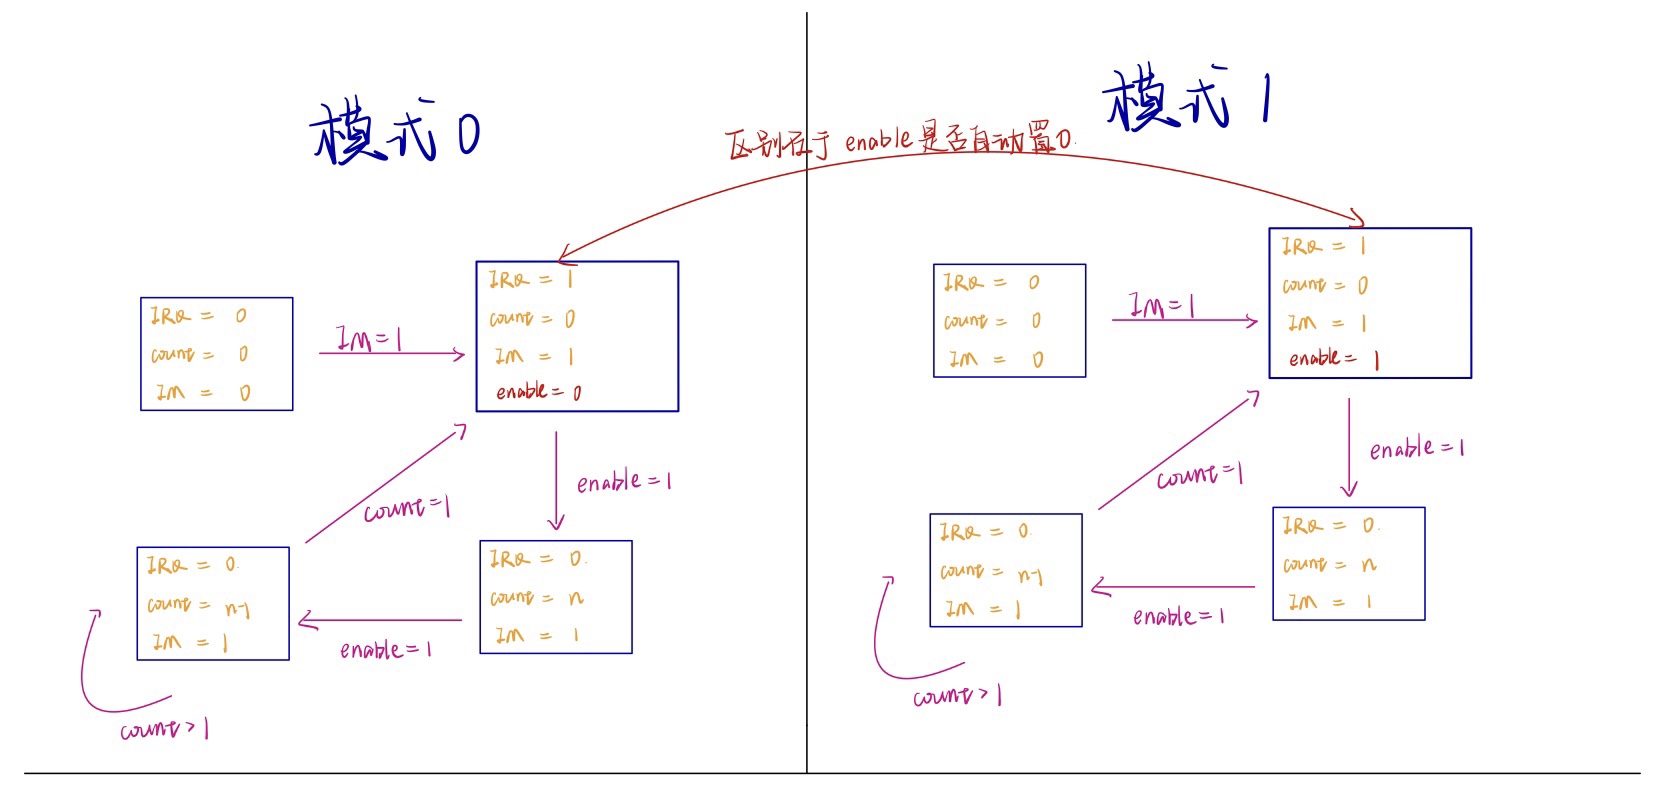 模式0
模式1
区别在于 enable是否自动置0.
IRQ = 0
count = 0
IM = 0
IM=1
IRQ = 1
count = 0
IM = 1
enable = 0
count=1
enable=1
IRQ = 0.
count = n-1
IM = 1
enable=1
IRQ = 0.
count = n
IM = 1
count>1
IRQ = 0
count = 0
IM = 0
IM=1
IRQ = 1
count = 0
IM = 1
enable = 1
count=1
enable=1
IRQ = 0.
count = n-1
IM = 1
enable=1
IRQ = 0.
count = n
IM = 1
count>1